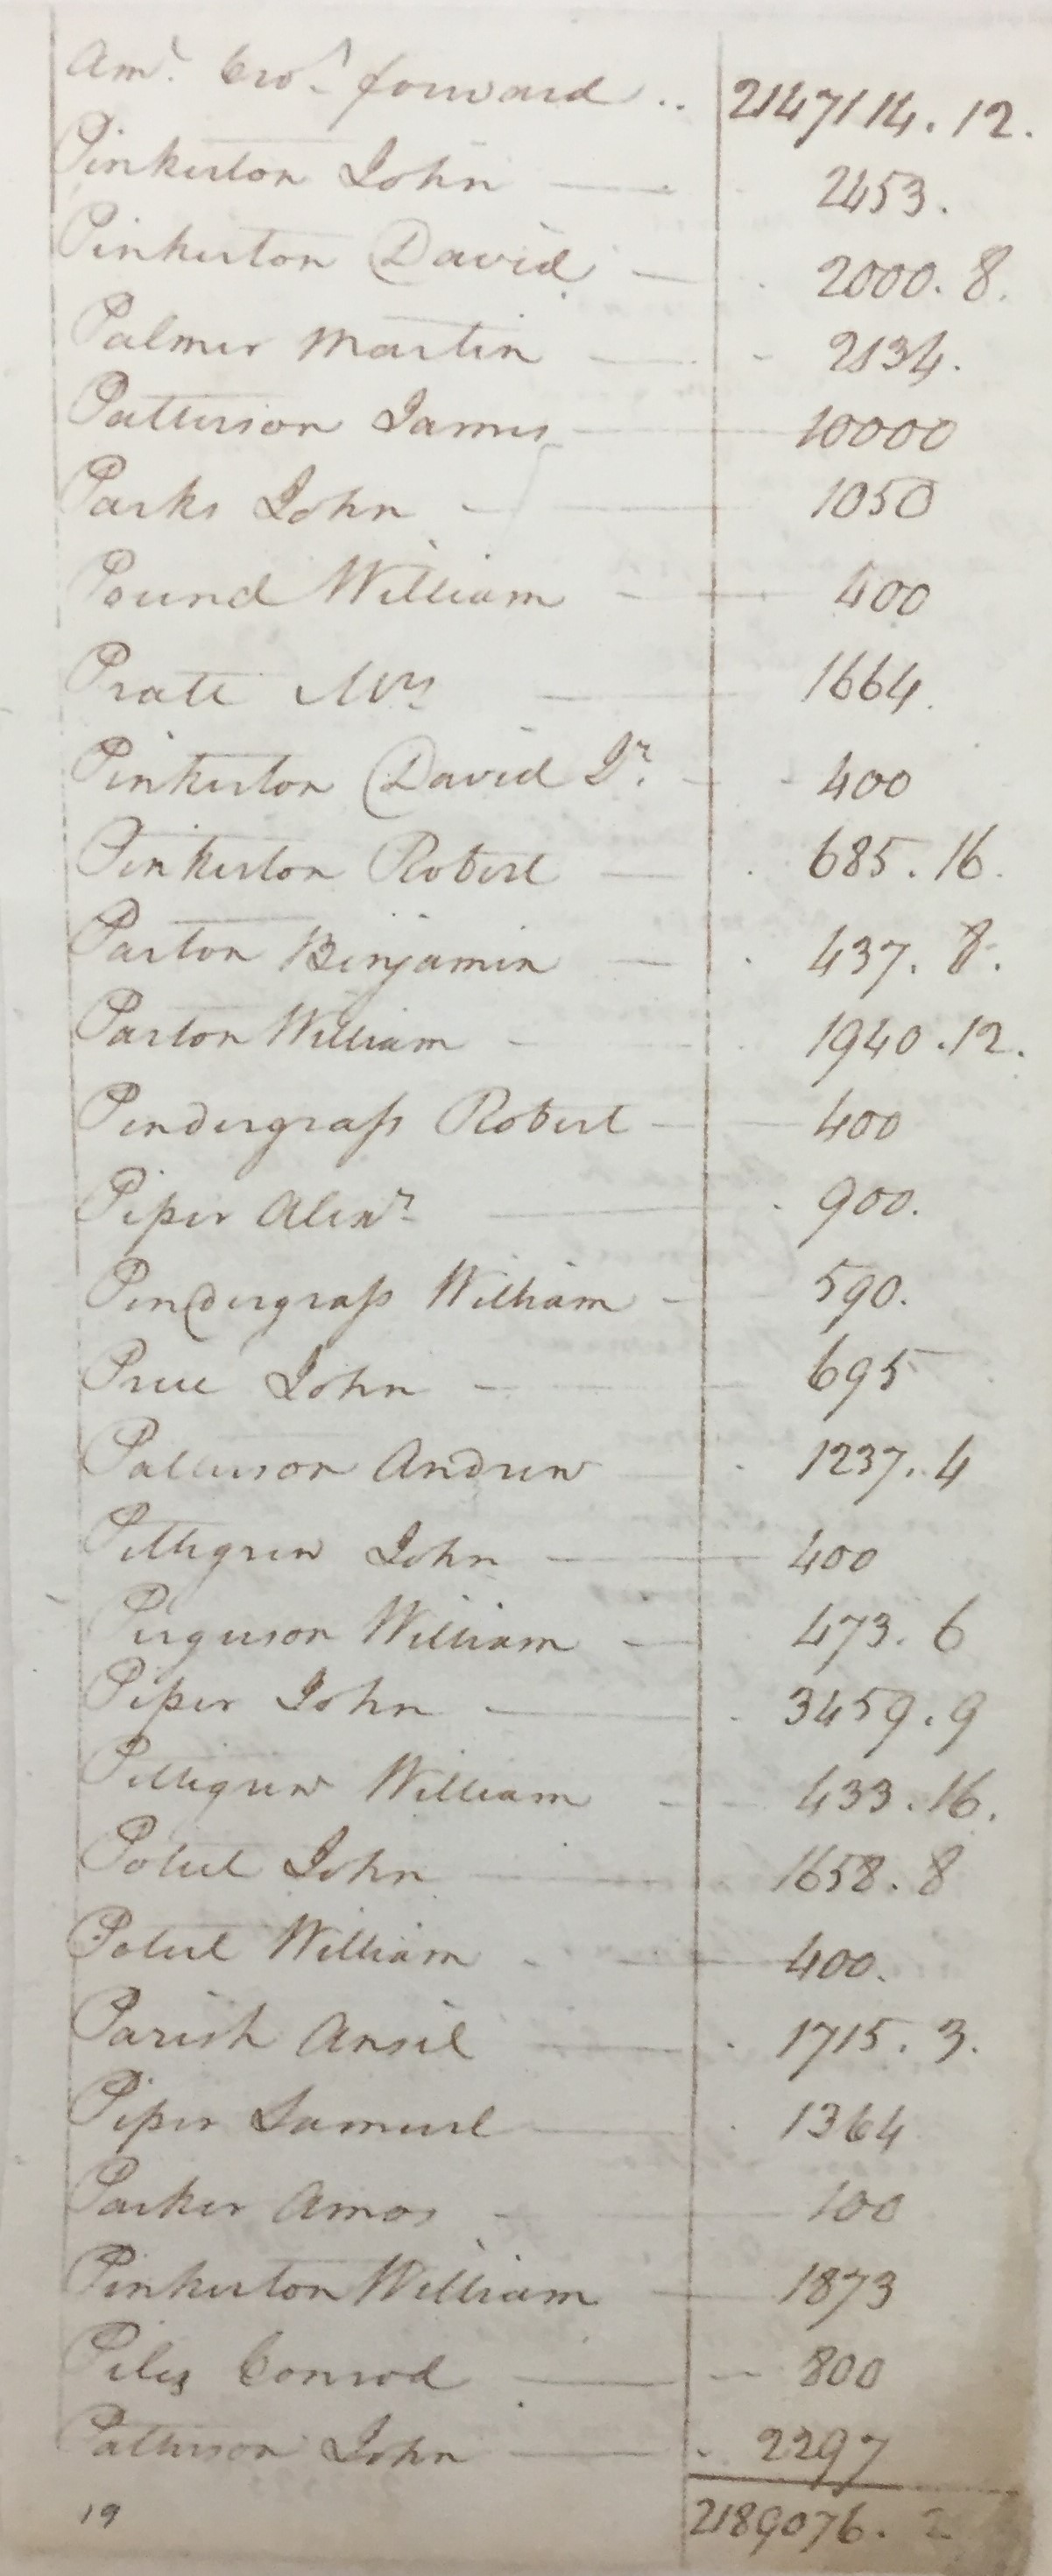 Amt. bro.t forward .. 2147114. 12.
Pinkerton John — 2453.
Pinkerton David — 2000. 8.
Palmer Martin — 2134.
Patterson James — 10000
Parks John — 1050
Pound William — 400
Prate Mrs — 1664.
Pinkerton David Jr. — 400
Pinkerton Robert — 685. 16.
Paxton Benjamin — 437. 8.
Paxton William — 1940. 12.
Pendergrass Robert — 400
Piper Alexr. — 900.
Pendergrass William — 590.
Price John — 695
Patterson Andrew — 1237. 4
Pettigrew John — 400
Perguson William — 473. 6
Piper John — 3459. 9
Pettigrew William — 433. 16.
Poteet John — 1658. 8
Poteet William — 400.
Parish Ansel — 1715. 3.
Piper Samuel — 1364
Parker Amos — 100
Pinkerton William — 1873
Piles Conrod — 800
Patterson John — 2297
19 2189076. 2